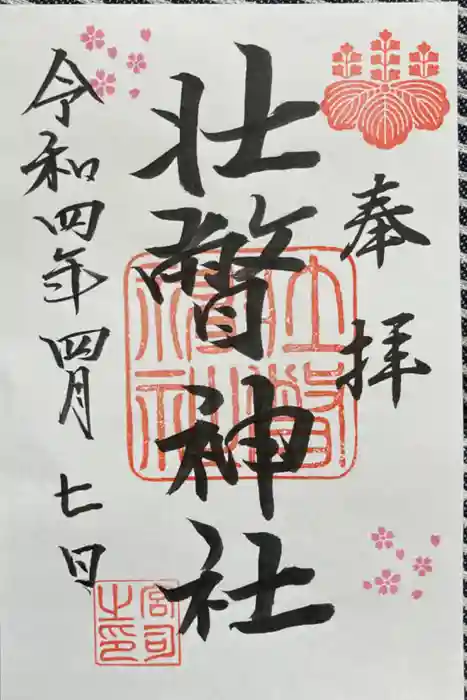 奉拝
壮瞥神社
令和四年四月七日
宮司
之印